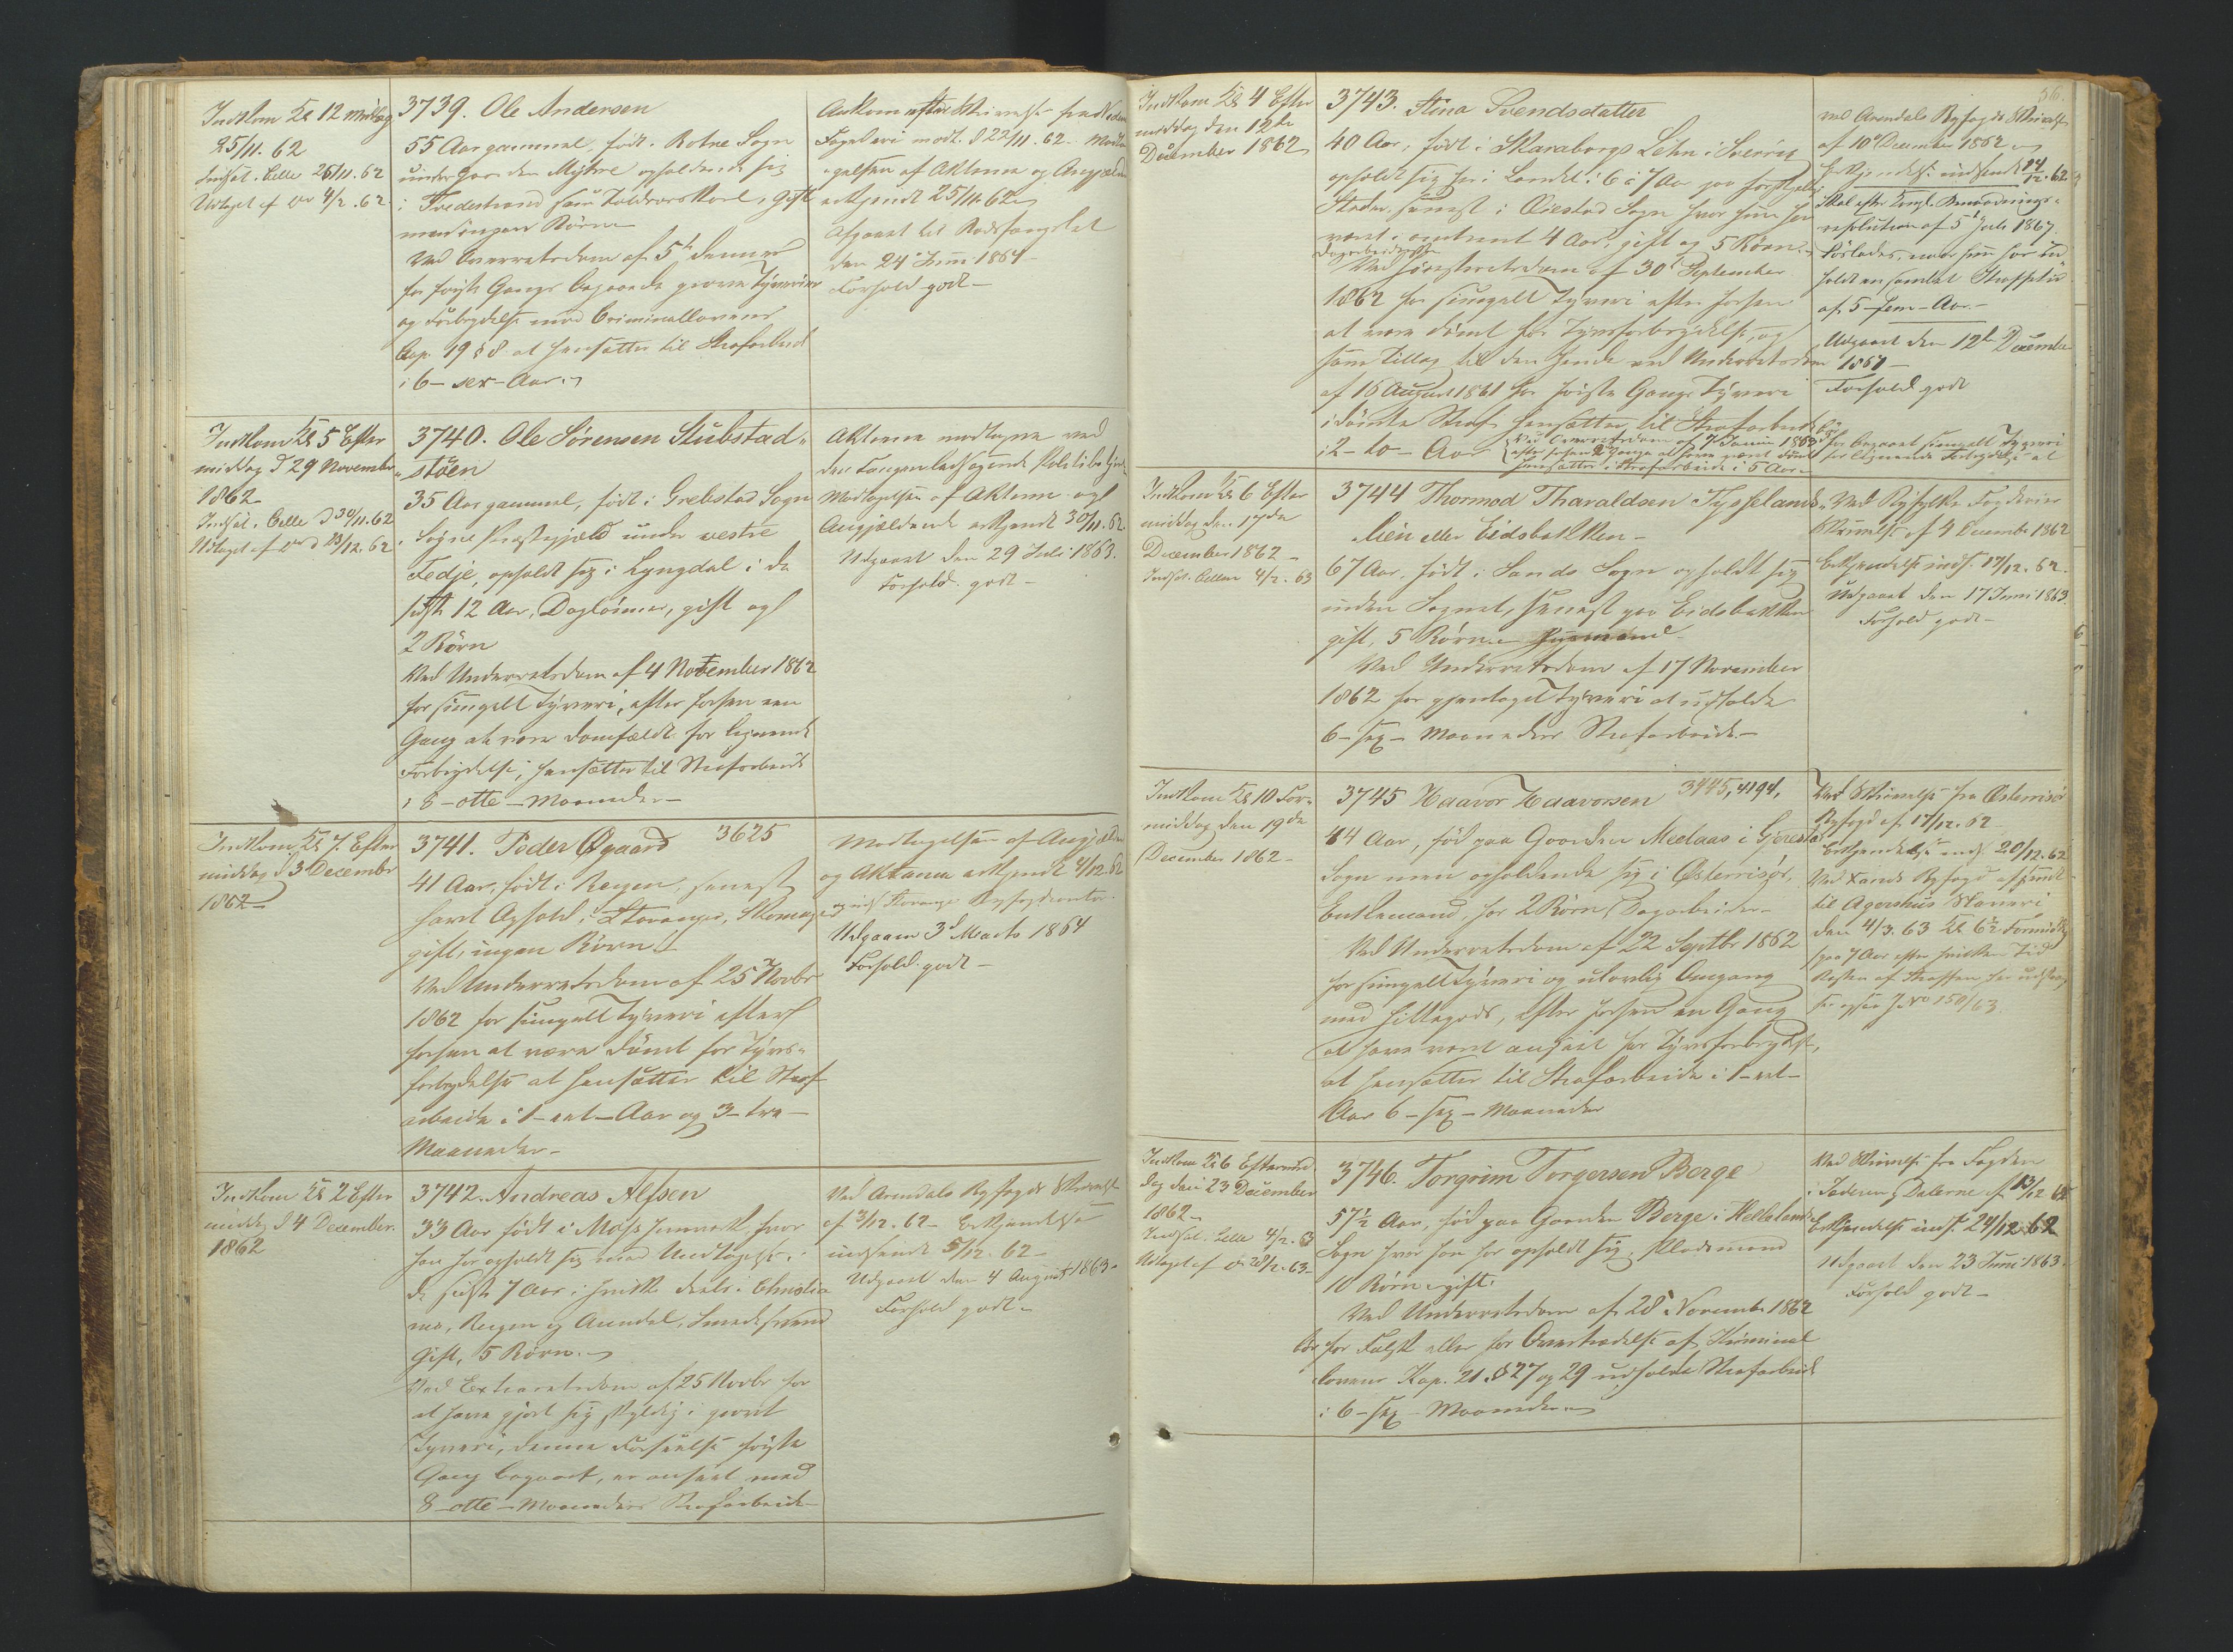 Indkom Kl 12 Middag
25/11. 62
Indsat i Celle 26/11. 62
Udtaget af do 4/2. 62
3739. Ole Andersen
55 Aar gammel, født i Sogn
opholdende sig
i Tvedestrand som gift
men ingen Børn
Ved Overretsdom af 5te
for første Gang begaaede grove Tyverier
og Forbrydelse mod Criminallovens
Cap. 19 § 8 at hensættes til Strafarbeid
i 6 - sex - Aar.
Fogderi modt. d 22/11. 62.
af Akterne og
erkjendt 25/11. 62
Afgaaet til Bodsfængslet
den 24 Juni 1864
Forhold godt -
Indkom Kl 5 Efter
middag d 29 November
1862
Indsat i Celle d 30/11. 62
Udtaget af do d 23/12. 62
3740. Ole Sørensen Stubstad-
støen
35 Aar gammel, født i Grebstad Sogn
Sogne Præstegjæld under vestre
Fedje, opholdt sig i Lyngdal i de
sidste 12 Aar, Dagleiner, gift og
2 Børn
Ved Underretsdom af 4 November 1862
for simpelt Tyveri, efter forhen een
Gang at være domfældt for lignende
Forbrydelse, hensættes til Strafarbeide
i 8 - otte - Maaneder -
Akterne modtagne ved
den Fangen ledsagende Politibetjent
Modtagelsen af Akterne og
Angjældende erkjendt 30/11. 62.
Udgaaet den 29 Juli 1863.
Forhold godt -
Indkom Kl 7. Efter
middag d 3 December
1862
3741. Peder Øgaard 3625
41 Aar, født i Bergen, senest
havt Ophold i Stavanger, Skomager
gift, ingen Børn
Ved Underretsdom af 25 Novbr
1862 for simpelt Tyveri efter
forhen at være dømt for Tyvs-
forbrydelse at hensættes til Straf
arbeide i 1 - eet - Aar og 3 - tre -
Maaneder -
Modtagelsen af Angjældende
og Akterne erkjendt 4/12. 62
Stavanger Byfogdcontor.
Udgaaen 3d Marts 1864
Forhold godt -
Indkom Kl 2 Efter
middag d 4 December
1862
3742. Andreas Alfsen
33 Aar født i Moss hvor
han har opholdt sig med Undtagelse i
de sidste 7 Aar i hvilke deels i Christia
nia, Bergen og Arendal, Smedesvend
Gift, 5 Børn.
Ved Extraretsdom af 25 Novbr for
at have gjort sig skyldig i grovt
Tyveri, denne Forseelse første
Gang begaaet, er anseet med
8 - otte - Maaneders Strafarbeide
Ved Arendals Byfogds Skrivelse
af 3/12. 62 - Erkjendelse
indsendt 5/12. 62 -
Udgaaet den 4 August 1863 -
Forhold godt -
56.
Indkom Kl 4 Efter
middag den 12te
December 1862
3743. Stina Svendsdatter
40 Aar, født i Skaraborgs Lehn i Sverrig
opholdt sig her i Landet i 6 à 7 Aar paa forskjellige
Steder, senest i Øiestad Sogn hvor hun har
været i omtrent 4 Aar, gift og 5 Børn.
Dagarbeiderske
Ved Høiesteretsdom af 30 September
1862 for simpelt Tyveri efter forhen
at være dømt for Tyvsforbrydelse, og
som Tillæg til den hende ved Underretsdom
af 16 August 1861 for første Gangs Tyveri
idømte Straf hensættes til Strafarbeide
i 2 - to - Aar
Ved Overretsdom af 7 Januar 1863 for begaaet simpelt Tyveri
efter forhen 2de Gange at have været dømt for lignende Forbrydelse at
hensættes i Strafarbeide i 5 Aar -
ved Arendals Byfogds Skrivelse
af 10 December 1862
Erkjendelse indsendt 14/12. 62
Skal efter Kongl. Benaadnings-
resolution af 5 Juli 1867
løslades, naar hun har ud-
holdt en samlet Straffetid
af 5 - fem - Aar -
Udgaaet den 12te December
1867 -
Forhold godt
Indkom Kl 6 Efter
middag den 17de
December 1862 -
Indsat i Cellen 4/2. 63
3744 Thormod Tharaldsen Tysselands-
lien eller Eidsbakken -
67 Aar, født i Sands Sogn opholdt sig
inden Sognet, senest paa Eidsbakken
gift, 5 Børn. Husmand -
Ved Underretsdom af 17 November
1862 for gjentaget Tyveri at udholde
6 - sex - Maaneders Strafarbeide -
Ved Ryfylke Fogderies
Skrivelse af 4 December 1862
Erkjendelse inds. 17/12. 62.
Udgaaet den 17 Juni 1863.
Forhold godt -
Indkom Kl 10 For-
middag den 19de
December 1862 -
3745 Haavor Haavorsen 3445, 4194,
44 Aar, fød paa Gaarden Medaas i Gjerestad
Sogn men opholdende sig i Østerrisør,
Enkemand, har 2 Børn, Dagarbeider -
Ved Underretsdom af 22 Septbr 1862
for simpelt Tyveri og ulovlig Omgang
med Hittegods, efter forhen en Gang
at have været anseet for Tyvsforbrydelse,
at hensættes til Strafarbeide i 1 - eet -
Aar 6 - sex - Maaneder
Ved Skrivelse fra Østerrisør
Byfogd af 17/12. 62
Erkjendelse inds. 20/12. 62
Ved Sands Byfogd afsendt
til Agershus Slaveri
den 4/3. 63 Kl 6½ Formiddag
paa 7 Aar efter hvilken Tid
Resten af Straffen her udstaaes
se ogsaa J. No 150/63.
Indkom Kl 6 Eftermid
dag den 23 December
1862
Indsat i Celle 4/2. 63
Udtaget af do 28/2. 63 -
3746. Torgrim Torgersen Berge
57½ Aar, fød paa Gaarden Berge i Hellelands
Sogn hvor han har opholdt sig, Pladsmand
10 Børn, gift.
Ved Underretsdom af 28 November 1862
bør for Falsk eller for Overtrædelse af Kriminal
lovens Kap. 21 § 27 og 29 udholde Strafarbeide
i 6 - sex - Maaneder
Ved Skrivelse fra Fogden
i Jæderen og Dalerne af 13/12 62
Erkjendelse inds. 24/12 62
Udgaaet den 23 Juni 1863.
Forhold godt -